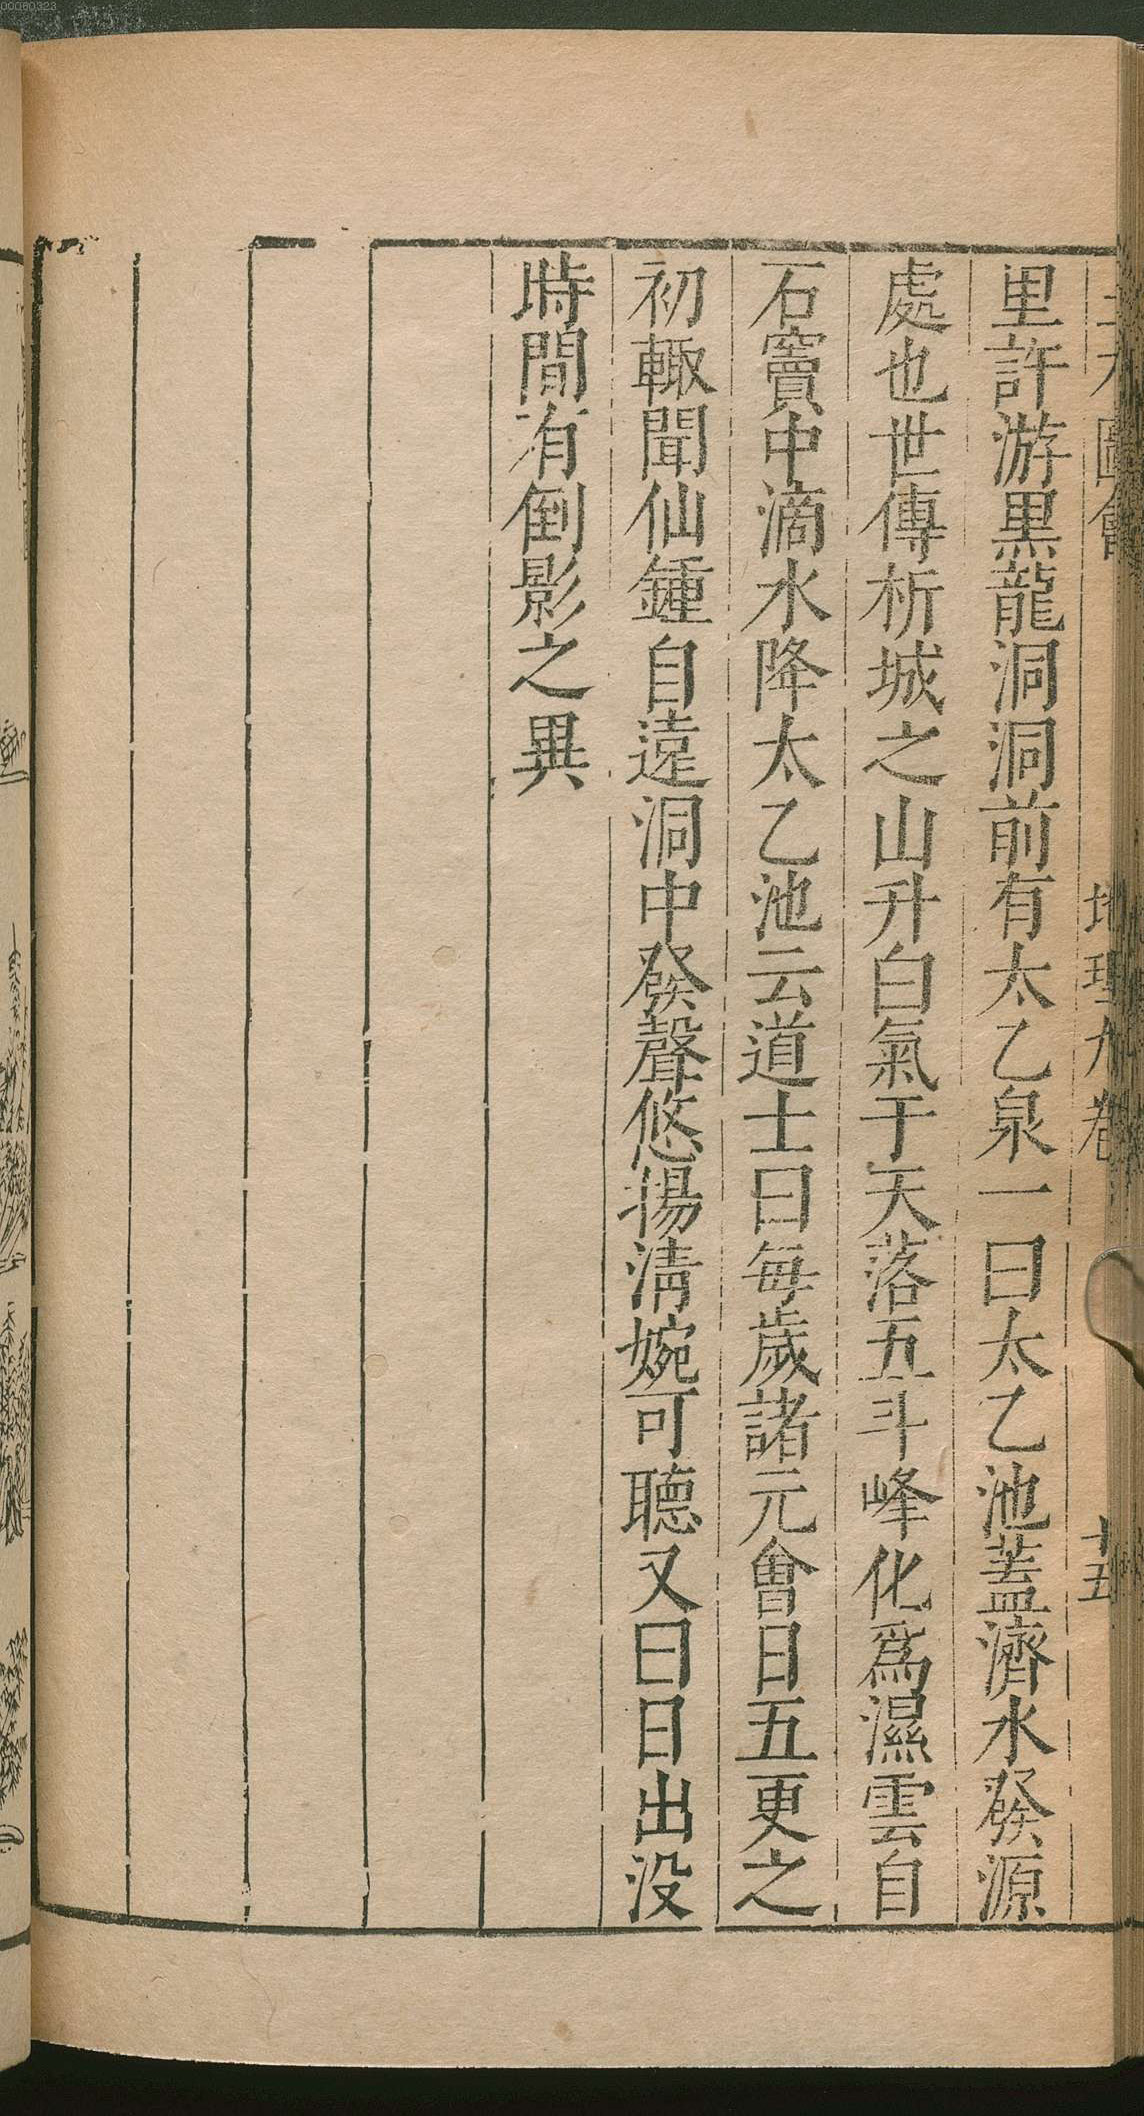 00060323
三才圖會 地理九卷 十五
里許游黒龍洞洞前有太乙泉一曰太乙池蓋濟水發源
處也世傳析城之山升白氣于天落五斗峰化爲濕雲自
石竇中滴水降太乙池云道士曰每歲諸元會日五更之
初輙聞仙鍾自遠洞中發聲悠揚淸婉可聽又曰日出没
時間有倒影之異